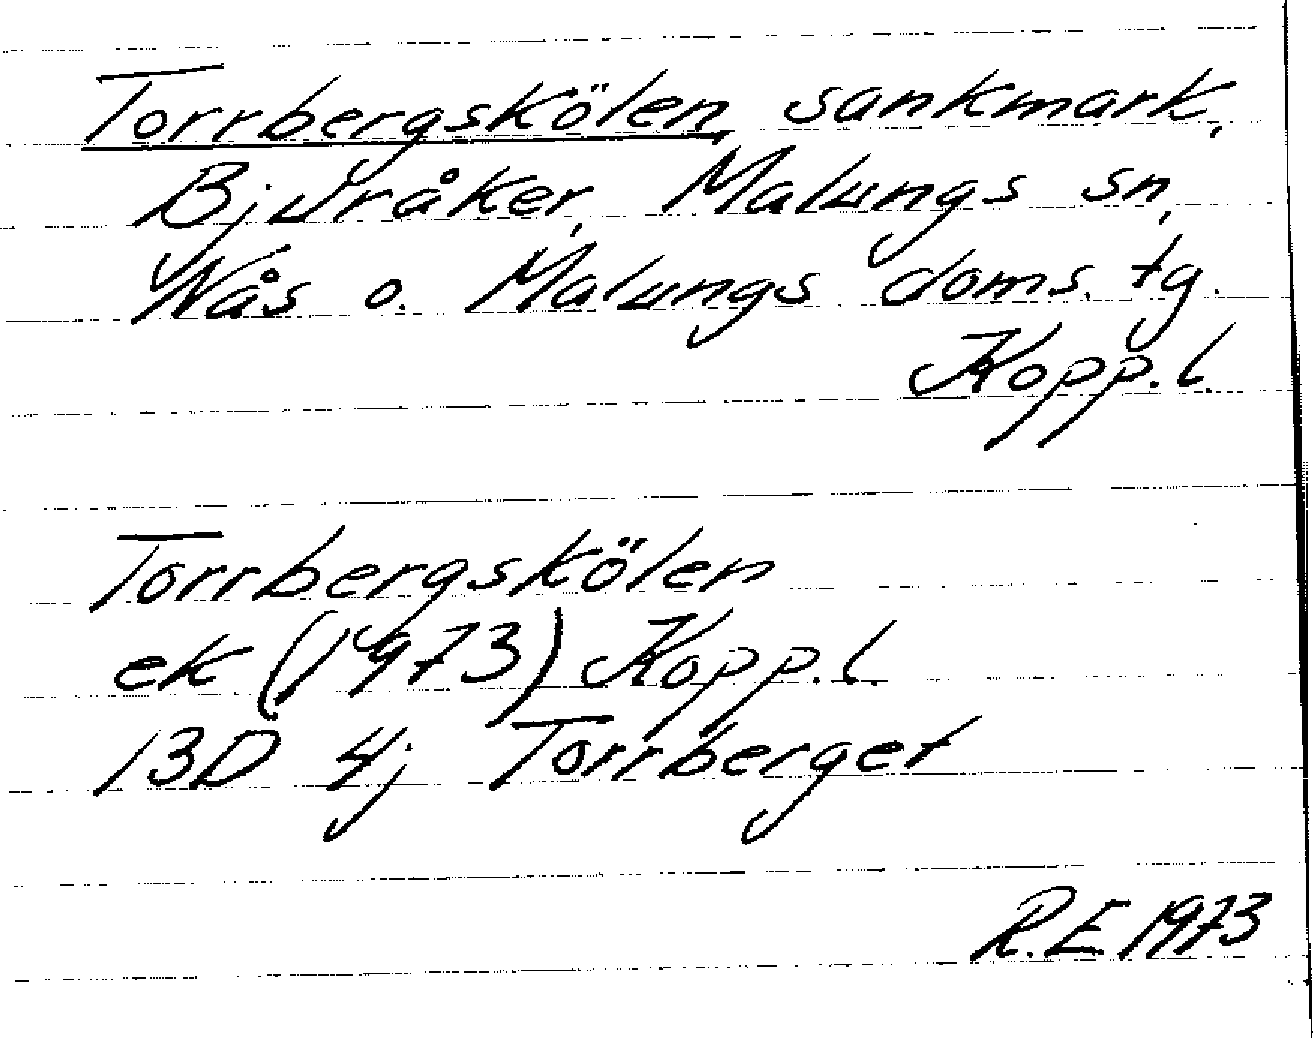 Torrbergskölen, sankmark,
Bjuråker, Malungs sn,
Nås o. Malungs doms. tg.
Kopp. l.
Torrbergskölen
ek (1973) Kopp. l.
13D 4j Torrberget
R.E. 1973